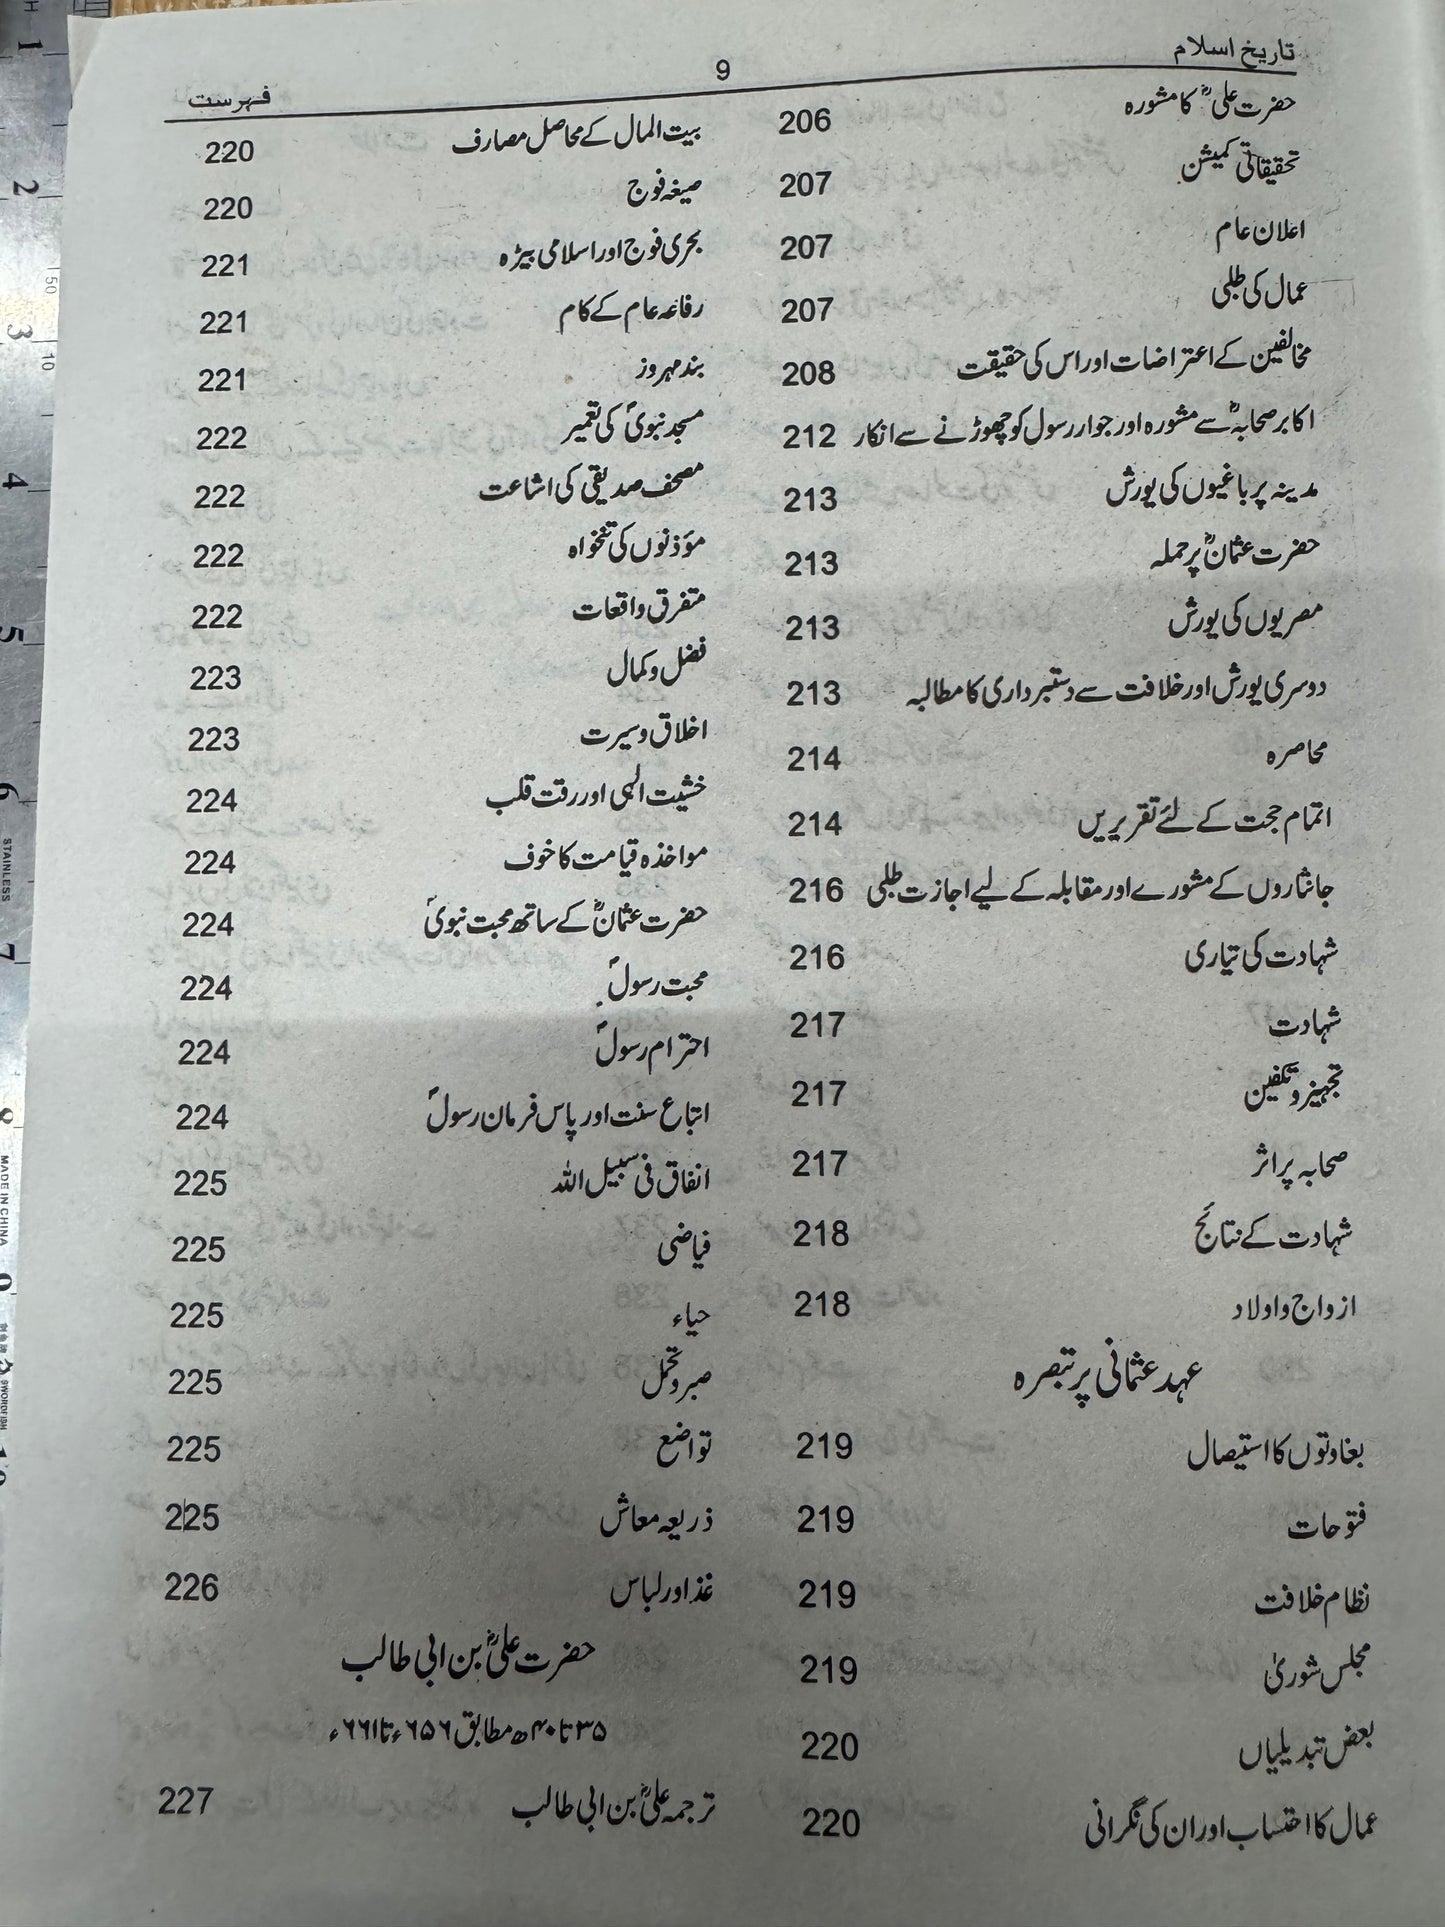 تاریخ اسلام
9
فہرست
حضرت علیؓ کا مشورہ 206
تحقیقاتی کمیشن 207
اعلان عام 207
عمال کی طلبی 207
مخالفین کے اعتراضات اور اس کی حقیقت 208
اکابر صحابہؓ سے مشورہ اور جوار رسول کو چھوڑنے سے انکار 212
مدینہ پر باغیوں کی یورش 213
حضرت عثمانؓ پر حملہ 213
مصریوں کی یورش 213
دوسری یورش اور خلافت سے دستبرداری کا مطالبہ 213
محاصرہ 214
اتمام حجت کے لئے تقریریں 214
جانثاروں کے مشورے اور مقابلہ کے لیے اجازت طلبی 216
شہادت کی تیاری 216
شہادت 217
تجہیز و تکفین 217
صحابہ پر اثر 217
شہادت کے نتائج 218
ازواج و اولاد 218
عہد عثمانی پر تبصرہ
بغاوتوں کا استیصال 219
فتوحات 219
نظام خلافت 219
مجلس شوریٰ 219
بعض تبدیلیاں 220
عمال کا احتساب اور ان کی نگرانی 220
بیت المال کے محاصل مصارف 220
صیغہ فوج 220
بحری فوج اور اسلامی بیڑہ 221
رفاعہ عام کے کام 221
بند مہروز 221
مسجد نبویؐ کی تعمیر 222
مصحف صدیقی کی اشاعت 222
مؤذنوں کی تنخواہ 222
متفرق واقعات 222
فضل و کمال 223
اخلاق و سیرت 223
خشیت الٰہی اور رقت قلب 224
مواخذہ قیامت کا خوف 224
حضرت عثمانؓ کے ساتھ محبت نبویؐ 224
محبت رسولؐ 224
احترام رسولؐ 224
اتباع سنت اور پاس فرمان رسولؐ 224
انفاق فی سبیل اللہ 225
فیاضی 225
حیاء 225
صبر و تحمل 225
تواضع 225
ذریعہ معاش 225
غذا اور لباس 226
حضرت علیؓ بن ابی طالب
۳۵ تا ۴۰ھ مطابق ۶۵۶ء تا ۶۶۱ء
ترجمہ علیؓ بن ابی طالب 227
1
2
3
4
5
6
STAINLESS
7
8
MADE IN CHINA
9